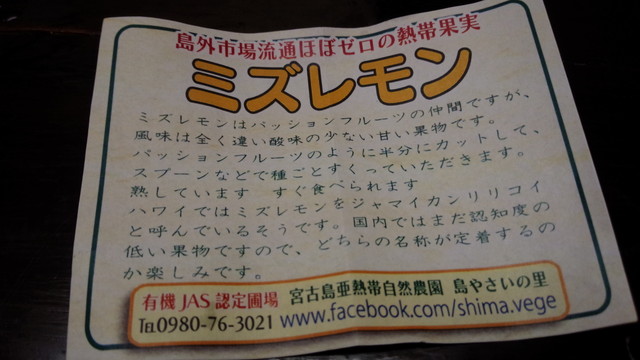 島外市場流通ほぼゼロの熱帯果実
ミズレモン
ミズレモンはパッションフルーツの仲間ですが、
風味は全く違い酸味の少ない甘い果物です。
パッションフルーツのように半分にカットして、
スプーンなどで種ごとすくっていただきます。
熟しています　すぐ食べられます
ハワイではミズレモンをジャマイカンリリコイ
と呼んでいるそうです。国内ではまだ認知度の
低い果物ですので、どちらの名称が定着するの
か楽しみです。
有機JAS認定圃場　宮古島亜熱帯自然農園　島やさいの里
TEL0980-76-3021 www.facebook.com/shima.vege